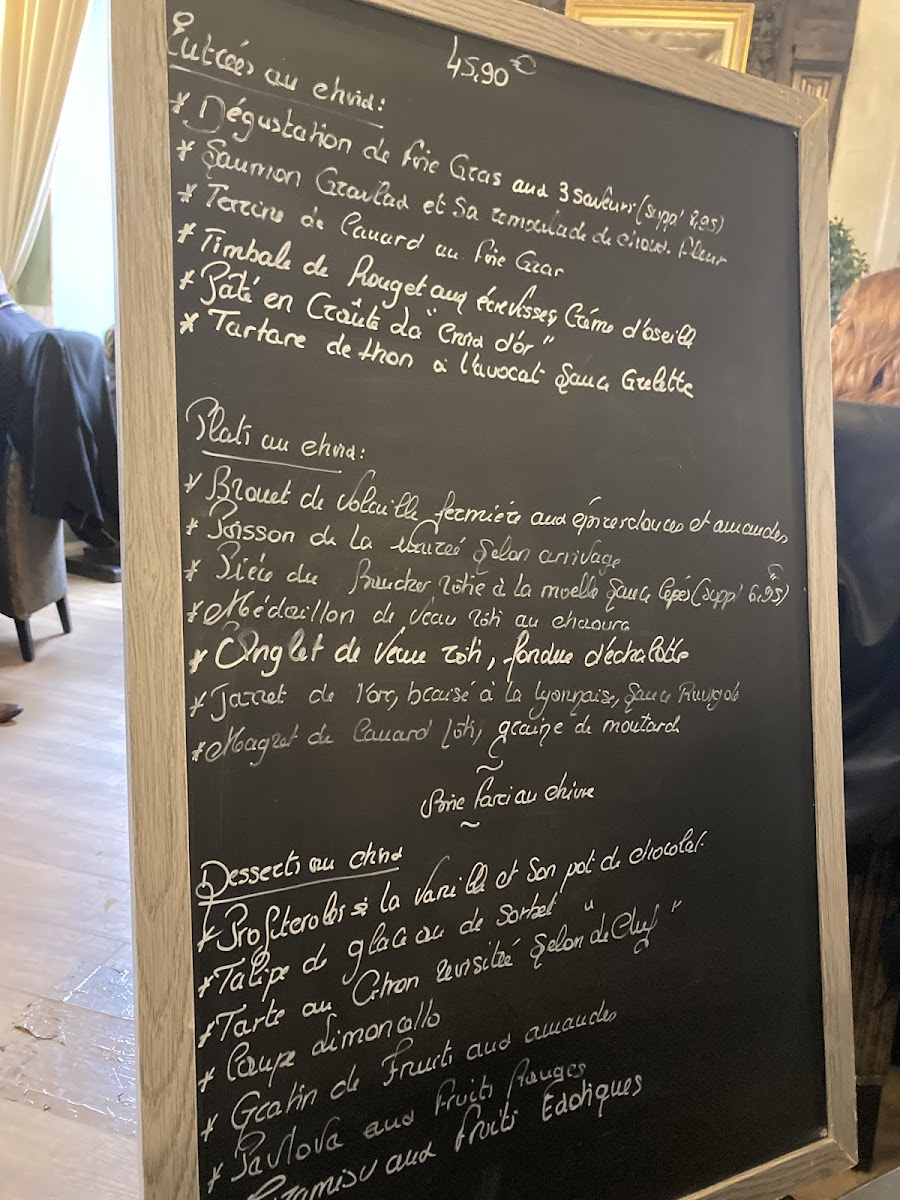 45,90 €
Entrées au choix :
* Dégustation de foie Gras aux 3 saveurs (supp' 8,95)
* Saumon Gravlad et sa remoulade de choux-fleur
* Terrine de Canard au foie Gras
* Timbale de Rouget aux écrevisses, Crème d'oseille
* Pâté en Croûte du "Croix d'or"
* Tartare de thon à l'avocat Sauce Grelette
Plats au choix :
* Brouet de volaille fermière aux épices douces et amandes
* Poisson de la Marée selon arrivage
* Pièce du Boucher rôtie à la moelle Sauce Cèpes (supp' 6,95)
* Médaillon de Veau rôti au chaource
* Onglet de Veau rôti, fondue d'échalotte
* Jarret de Porc, braisé à la lyonnaise, Sauce
* Magret de Canard rôti, graine de moutarde
~
Brie farci au chèvre
~
Desserts au choix
* Profiteroles à la Vanille et son pot de chocolat.
* Tulipe de glace ou de Sorbet
* Tarte au Citron revisitée "Selon le Chef"
* Coupe Limoncello
* Gratin de Fruits aux amandes
* Pavlova aux Fruits Rouges
Tiramisu aux fruits Exotiques